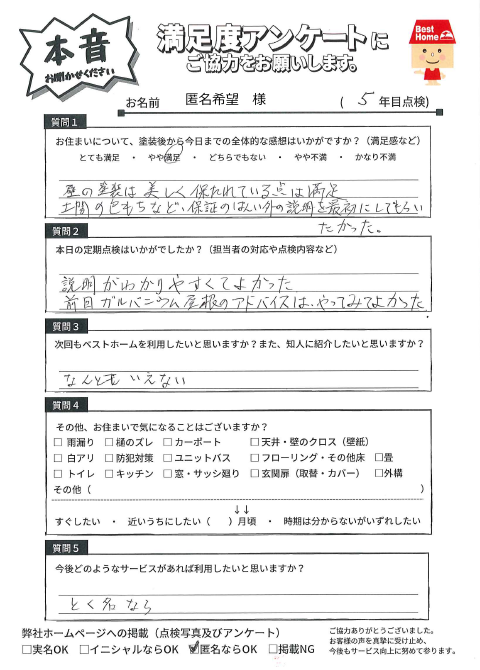 本音
お聞かせください
満足度アンケートに
ご協力をお願いします。
Best
Home
お名前 匿名希望 様 ( 5 年目点検)
質問1
お住まいについて、塗装後から今日までの全体的な感想はいかがですか?(満足感など)
とても満足 ・ やや満足 ・ どちらでもない ・ やや不満 ・ かなり不満
壁の塗装は美しく保たれている点は満足
土間の色もちなど、保証のはんい外の説明を最初にしてもらい
たかった。
質問2
本日の定期点検はいかがでしたか?(担当者の対応や点検内容など)
説明がわかりやすくてよかった
前回ガルバニウム屋根のアドバイスは、やってみてよかった
質問3
次回もベストホームを利用したいと思いますか?また、知人に紹介したいと思いますか?
なんともいえない
質問4
その他、お住まいで気になることはございますか?
□ 雨漏り □ 樋のズレ □ カーポート □ 天井・壁のクロス(壁紙)
□ 白アリ □ 防犯対策 □ ユニットバス □ フローリング・その他床 □畳
□ トイレ □ キッチン □ 窓・サッシ廻り □ 玄関扉(取替・カバー) □外構
その他( )
↓↓
すぐしたい ・ 近いうちにしたい( )月頃 ・ 時期は分からないがいずれしたい
質問5
今後どのようなサービスがあれば利用したいと思いますか?
とく名なら
弊社ホームページへの掲載(点検写真及びアンケート)
□実名OK □イニシャルならOK ☑匿名ならOK □掲載NG
ご協力ありがとうございました。
お客様の声を真摯に受け止め、
今後もサービス向上に努めて参ります。